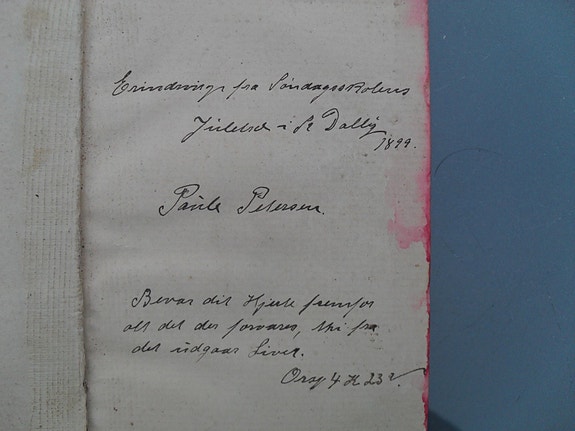 Erindring fra Søndagsskolens
Juletræ i St Dalby
1899.
Paula Petersen.
Bevar dit Hjerte fremfor
alt det der forvares, thi fra
det udgaar Livet.
Ordsp 4 K 23 v